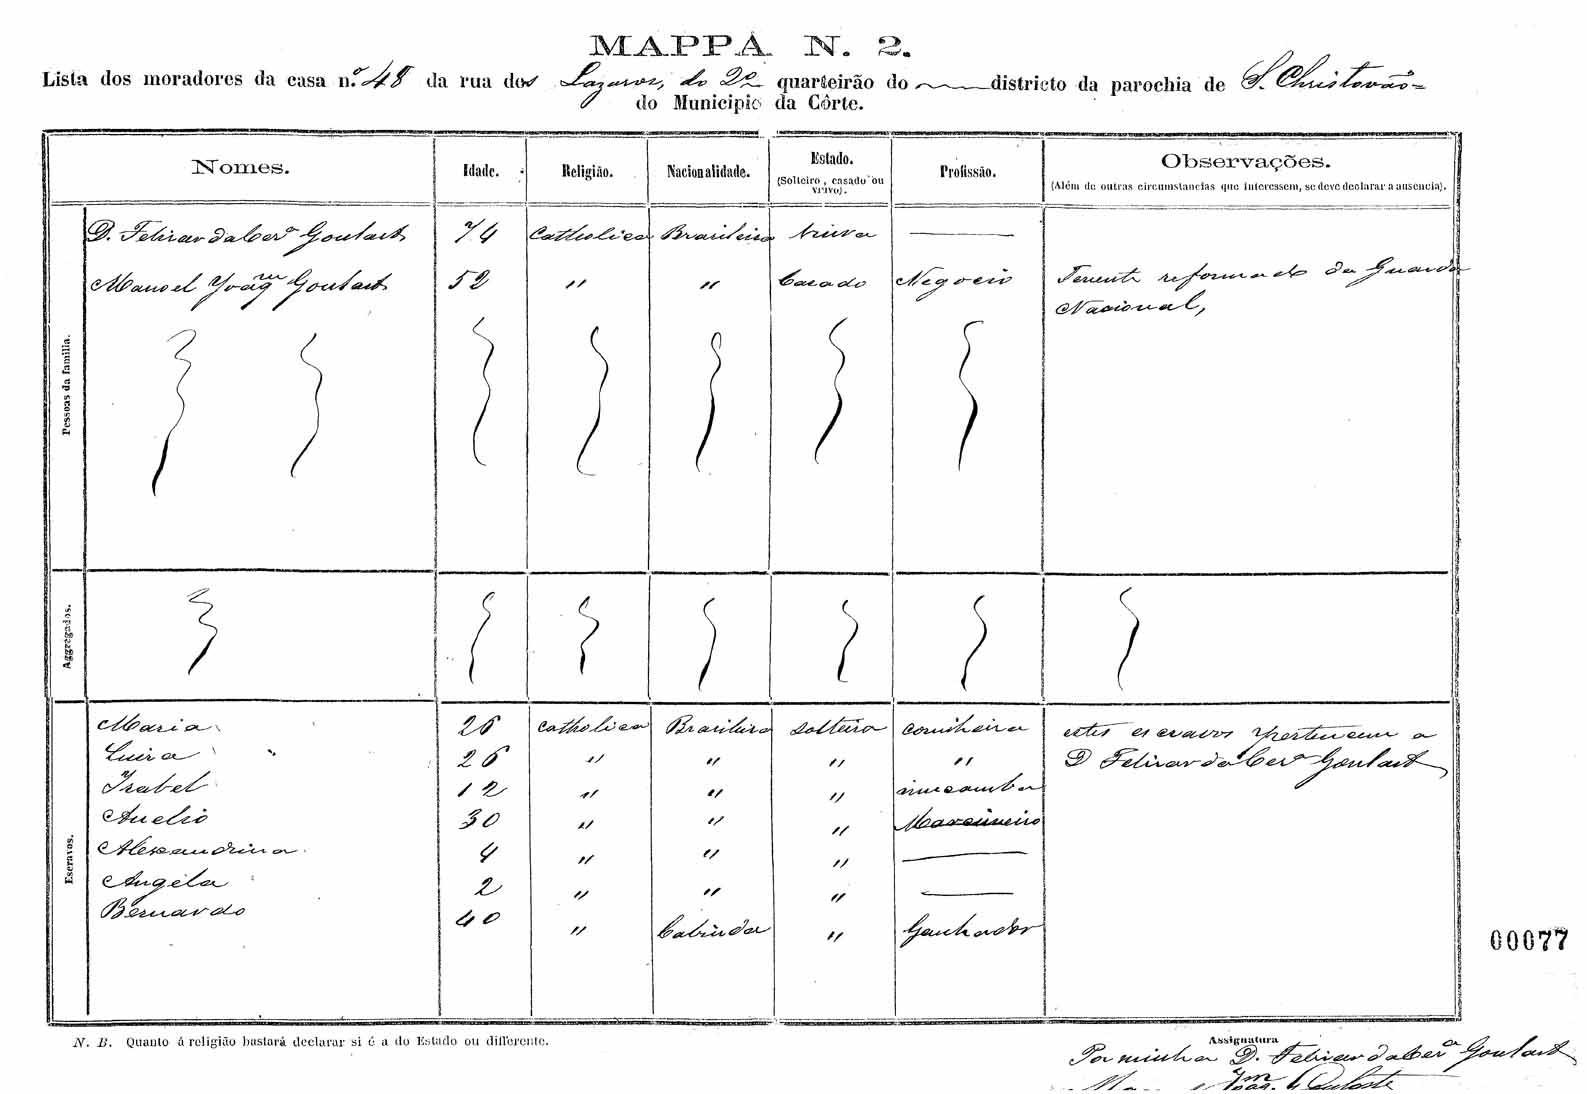 MAPPA N. 2.
Lista dos moradores da casa n.º 48 da rua dos Lazaros, do 2º quarteirão do districto da parochia de S. Christovão
do Municipio da Côrte.
Nomes. Idade. Religião. Nacionalidade. Estado. (Solteiro, casado ou viuvo). Profissão. Observações. (Além de outras circumstancias que interessem, se deve declarar a ausencia).
Pessoas da familia.
D. Felizarda Cerª Goulart 74 Catholica Brasileira Viuva
Manoel Joaqm Goulart 52 " " Casado Negocio Tenente reformado da Guarda
Nacional,
Aggregados.
Escravos.
Maria 26 Catholica Brasileira solteira cosinheira estes escravos pertencem a
Luiza 26 " " " " D Felizarda Cerª Goulart
Izabel 12 " " " mucamba
Aurelio 30 " " " Marcineiro
Alexandrina 4 " " "
Angela 2 " " "
Bernardo 40 " Cabinda " Ganhador
00077
N. B. Quanto á religião bastará declarar si é a do Estado ou differente.
Assignatura
Por minha D. Felizarda Cerª Goulart